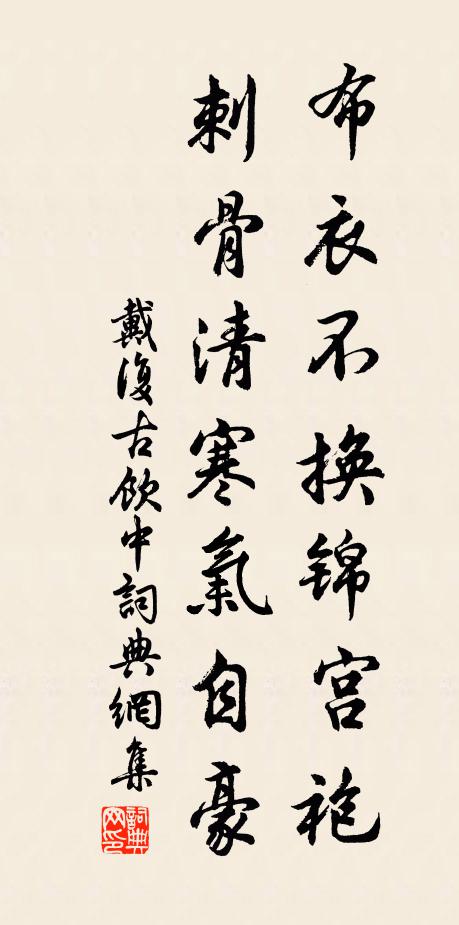 布衣不换锦宫袍
刺骨清寒氣自豪
戴復古飲中詞典網集
詞典网印